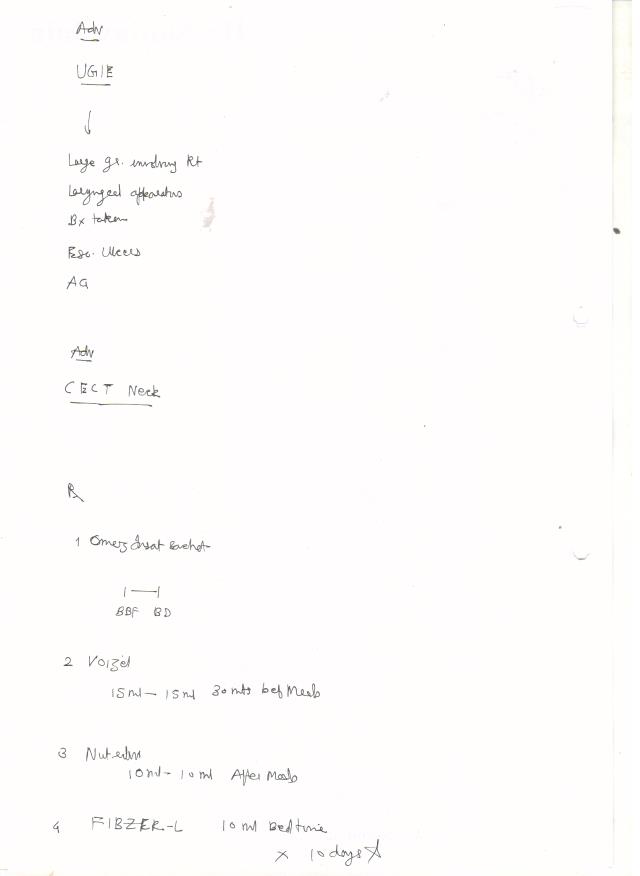 Adv
UGIE
↓
Large gr. involving Rt
Laryngeal apparatus
Bx taken
Eso. Ulcers
AG
Adv
CECT Neck
Rx
1 Omez Insat sachet
1 — 1
BBF BD
2 Voizel
15 ml — 15 ml 30 mts bef Meals
3
10 ml - 10 ml After Meals
4 FIBZER-L 10 ml Bedtime
x 10 days